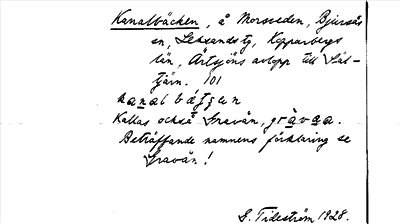 Kanalbäcken, å Morsveden, Bjursås
sn, Leksands tg, Kopparbergs
län, Årtsjöns avlopp till Lål-
tjärn. 101
kanal bäʒʒen
Kallas också Gravån, gràvaa.
Beträffande namnens förklaring se
Gravån!
G. Tideström 1928.